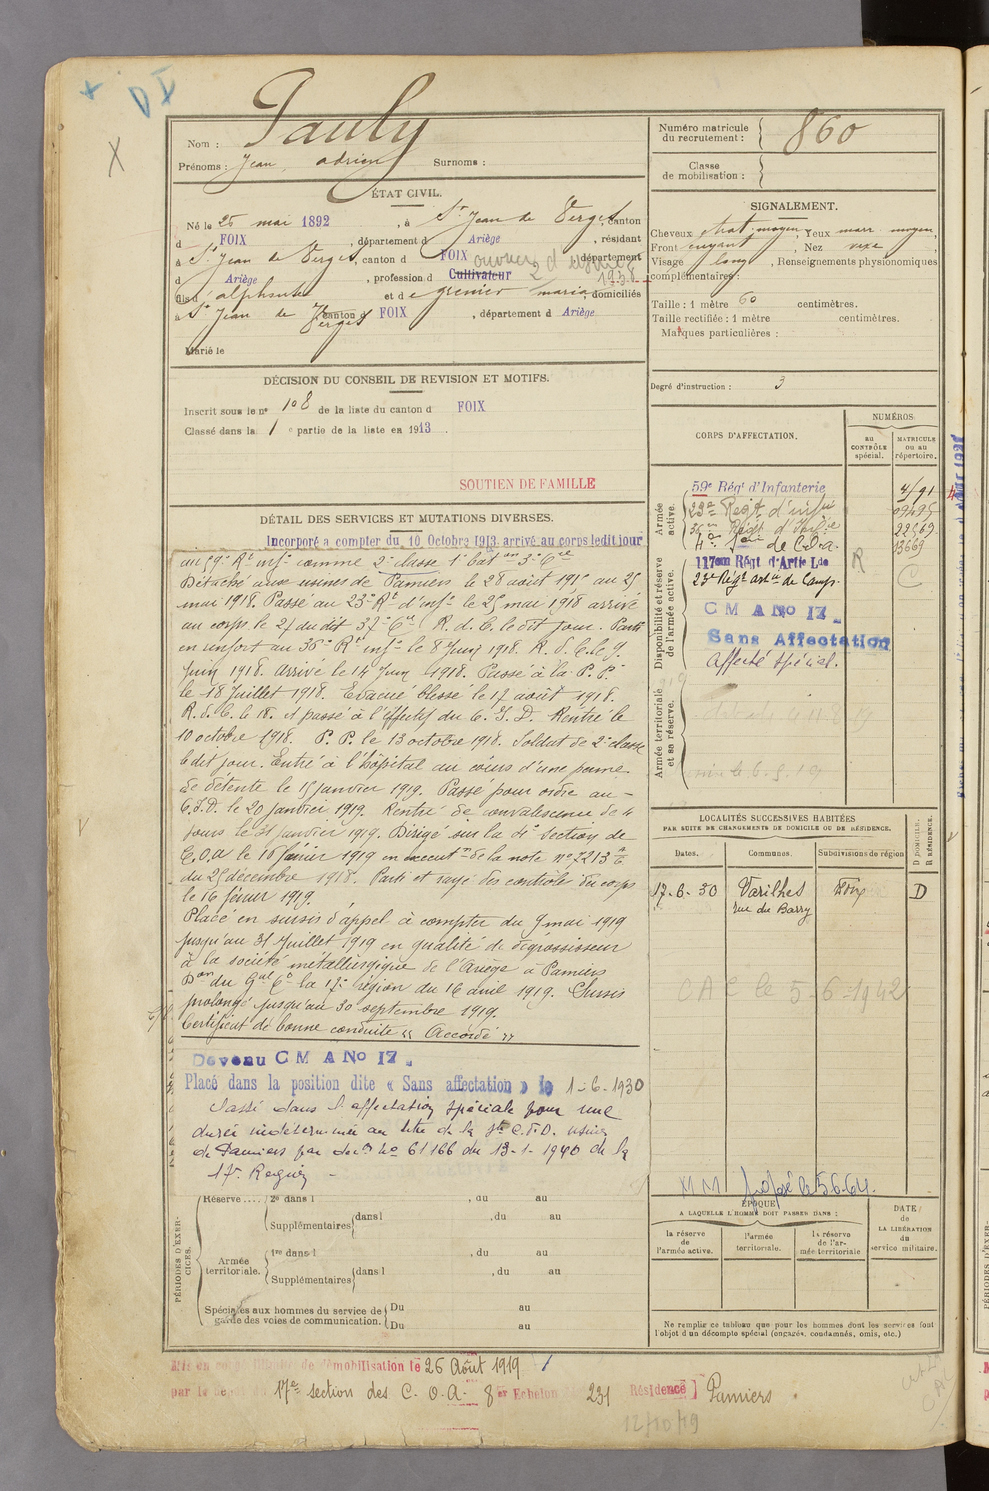 D X
Nom : Pauly
Prénoms : Jean adrien Surnoms :
Numéro matricule du recrutement : 860
Classe de mobilisation :
ÉTAT CIVIL.
Né le 25 mai 1892, à St Jean de Verges, canton
d FOIX, département d Ariège, résidant
à St Jean de Verges, canton d FOIX, département
d Ariège, profession d Cultivateur ouvrier d usines 1938
fils d'alphonse et de grenier maria, domiciliés
à St Jean de Verges canton d FOIX, département d Ariège
Marié le
SIGNALEMENT.
Cheveux chat. moyen, Yeux marr. moyen,
Front fuyant, Nez
Visage long, Renseignements physionomiques
complémentaires :
Taille : 1 mètre 60 centimètres.
Taille rectifiée : 1 mètre centimètres.
Marques particulières :
Degré d'instruction : 3
DÉCISION DU CONSEIL DE REVISION ET MOTIFS.
Inscrit sous le n° 108 de la liste du canton d FOIX
Classé dans la 1e partie de la liste en 1913.
SOUTIEN DE FAMILLE
DÉTAIL DES SERVICES ET MUTATIONS DIVERSES.
Incorporé a compter du 10 Octobre 1913. arrivé au corps ledit jour
au 59e Rt infie comme 2e classe 1er bat on 3e Cie
Détaché aux usines de Pamiers le 28 août 1915 au 25
mai 1918. Passé au 23e Rt d'infie le 25 mai 1918 arrivé
au corps le 27 du dit 37e Cie R. d. C. le dit jour. Parti
en renfort au 36e Rt infie le 8 Juin 1918. R. d. C. le 9
Juin 1918. arrivé le 14 Juin 1918. Passé à la P. P.
le 18 Juillet 1918. Evacué blessé le 12 août 1918.
R. d. C. le 18. et passé à l'effectif du C. I. D. Rentré le
10 octobre 1918. P. P. le 13 octobre 1918. Soldat de 2e classe
le dit jour. Entré à l'hôpital au cours d'une perme-
de détente le 15 janvier 1919. Passé pour ordre au-
C.I.D. le 20 janvier 1919. Rentré de convalescence de
jours le 31 janvier 1919. Dirigé sur la 4e Section de
C.O.A le 16 février 1919 en execution de la note n° 2213
du 25 décembre 1918. Parti et rayé des contrôles du corps
le 16 février 1919.
Placé en sursis d'appel à compter du 9 mai 1919
jusqu'au 31 Juillet 1919 en qualité de dégrossisseur
à la société métallurgique de l'Ariège à Pamiers
Don du Gal Ct la 17e région du 16 avril 1919. Sursis
prolongé jusqu'au 30 septembre 1919.
Certificat de bonne conduite « Accordé »
Devenu C M A No 17.
Placé dans la position dite « Sans affectation » le 1-6-1930
Classé dans l'affectation spéciale pour une
durée indéterminée au titre de la usines
de Pamiers par decon No 61166 du 13-1-1940 de la
17e Region
CORPS D'AFFECTATION.
NUMÉROS
au CONTRÔLE spécial.
MATRICULE ou au répertoire.
Armée active.
59e Régt d'Infanterie
23e Régt d'infie
36me Régt d'Infie
4e Son de C.O.A.
Disponibilité et réserve de l'armée active.
117eme Régt d'Artie Lde
23e Régt artie de Camp.
C M A No 17.
Sans Affectation
Affecté spécial.
R
C
Armée territoriale et sa réserve.
LOCALITÉS SUCCESSIVES HABITÉES
PAR SUITE DE CHANGEMENTS DE DOMICILE OU DE RÉSIDENCE.
Dates. Communes. Subdivisions de région D DOMICILE. R RÉSIDENCE.
17-6-30 Varilhes Foix D
rue du Barry
CAC le 5-6-1942
MM proposé le 5.6.64.
ÉPOQUE
A LAQUELLE L'HOMME DOIT PASSER DANS :
la réserve de l'armée active.
l'armée territoriale.
la réserve de l'armée territoriale
DATE de LA LIBÉRATION du service militaire.
Ne remplir ce tableau que pour les hommes dont les services font
l'objet d'un décompte spécial (engagés, condamnés, omis, etc.)
PÉRIODES D'EXERCICES.
Réserve.... 2e dans l , du au
Supplémentaires dans l , du au
Armée territoriale. 1re dans l , du au
Supplémentaires dans l , du au
Spéciales aux hommes du service de garde des voies de communication. Du au
Du au
Mis en congé illimité de démobilisation le 26 Août 1919
par le 17e section des C. O. A. 8e Echelon 231 Résidence Pamiers.
12/10/19